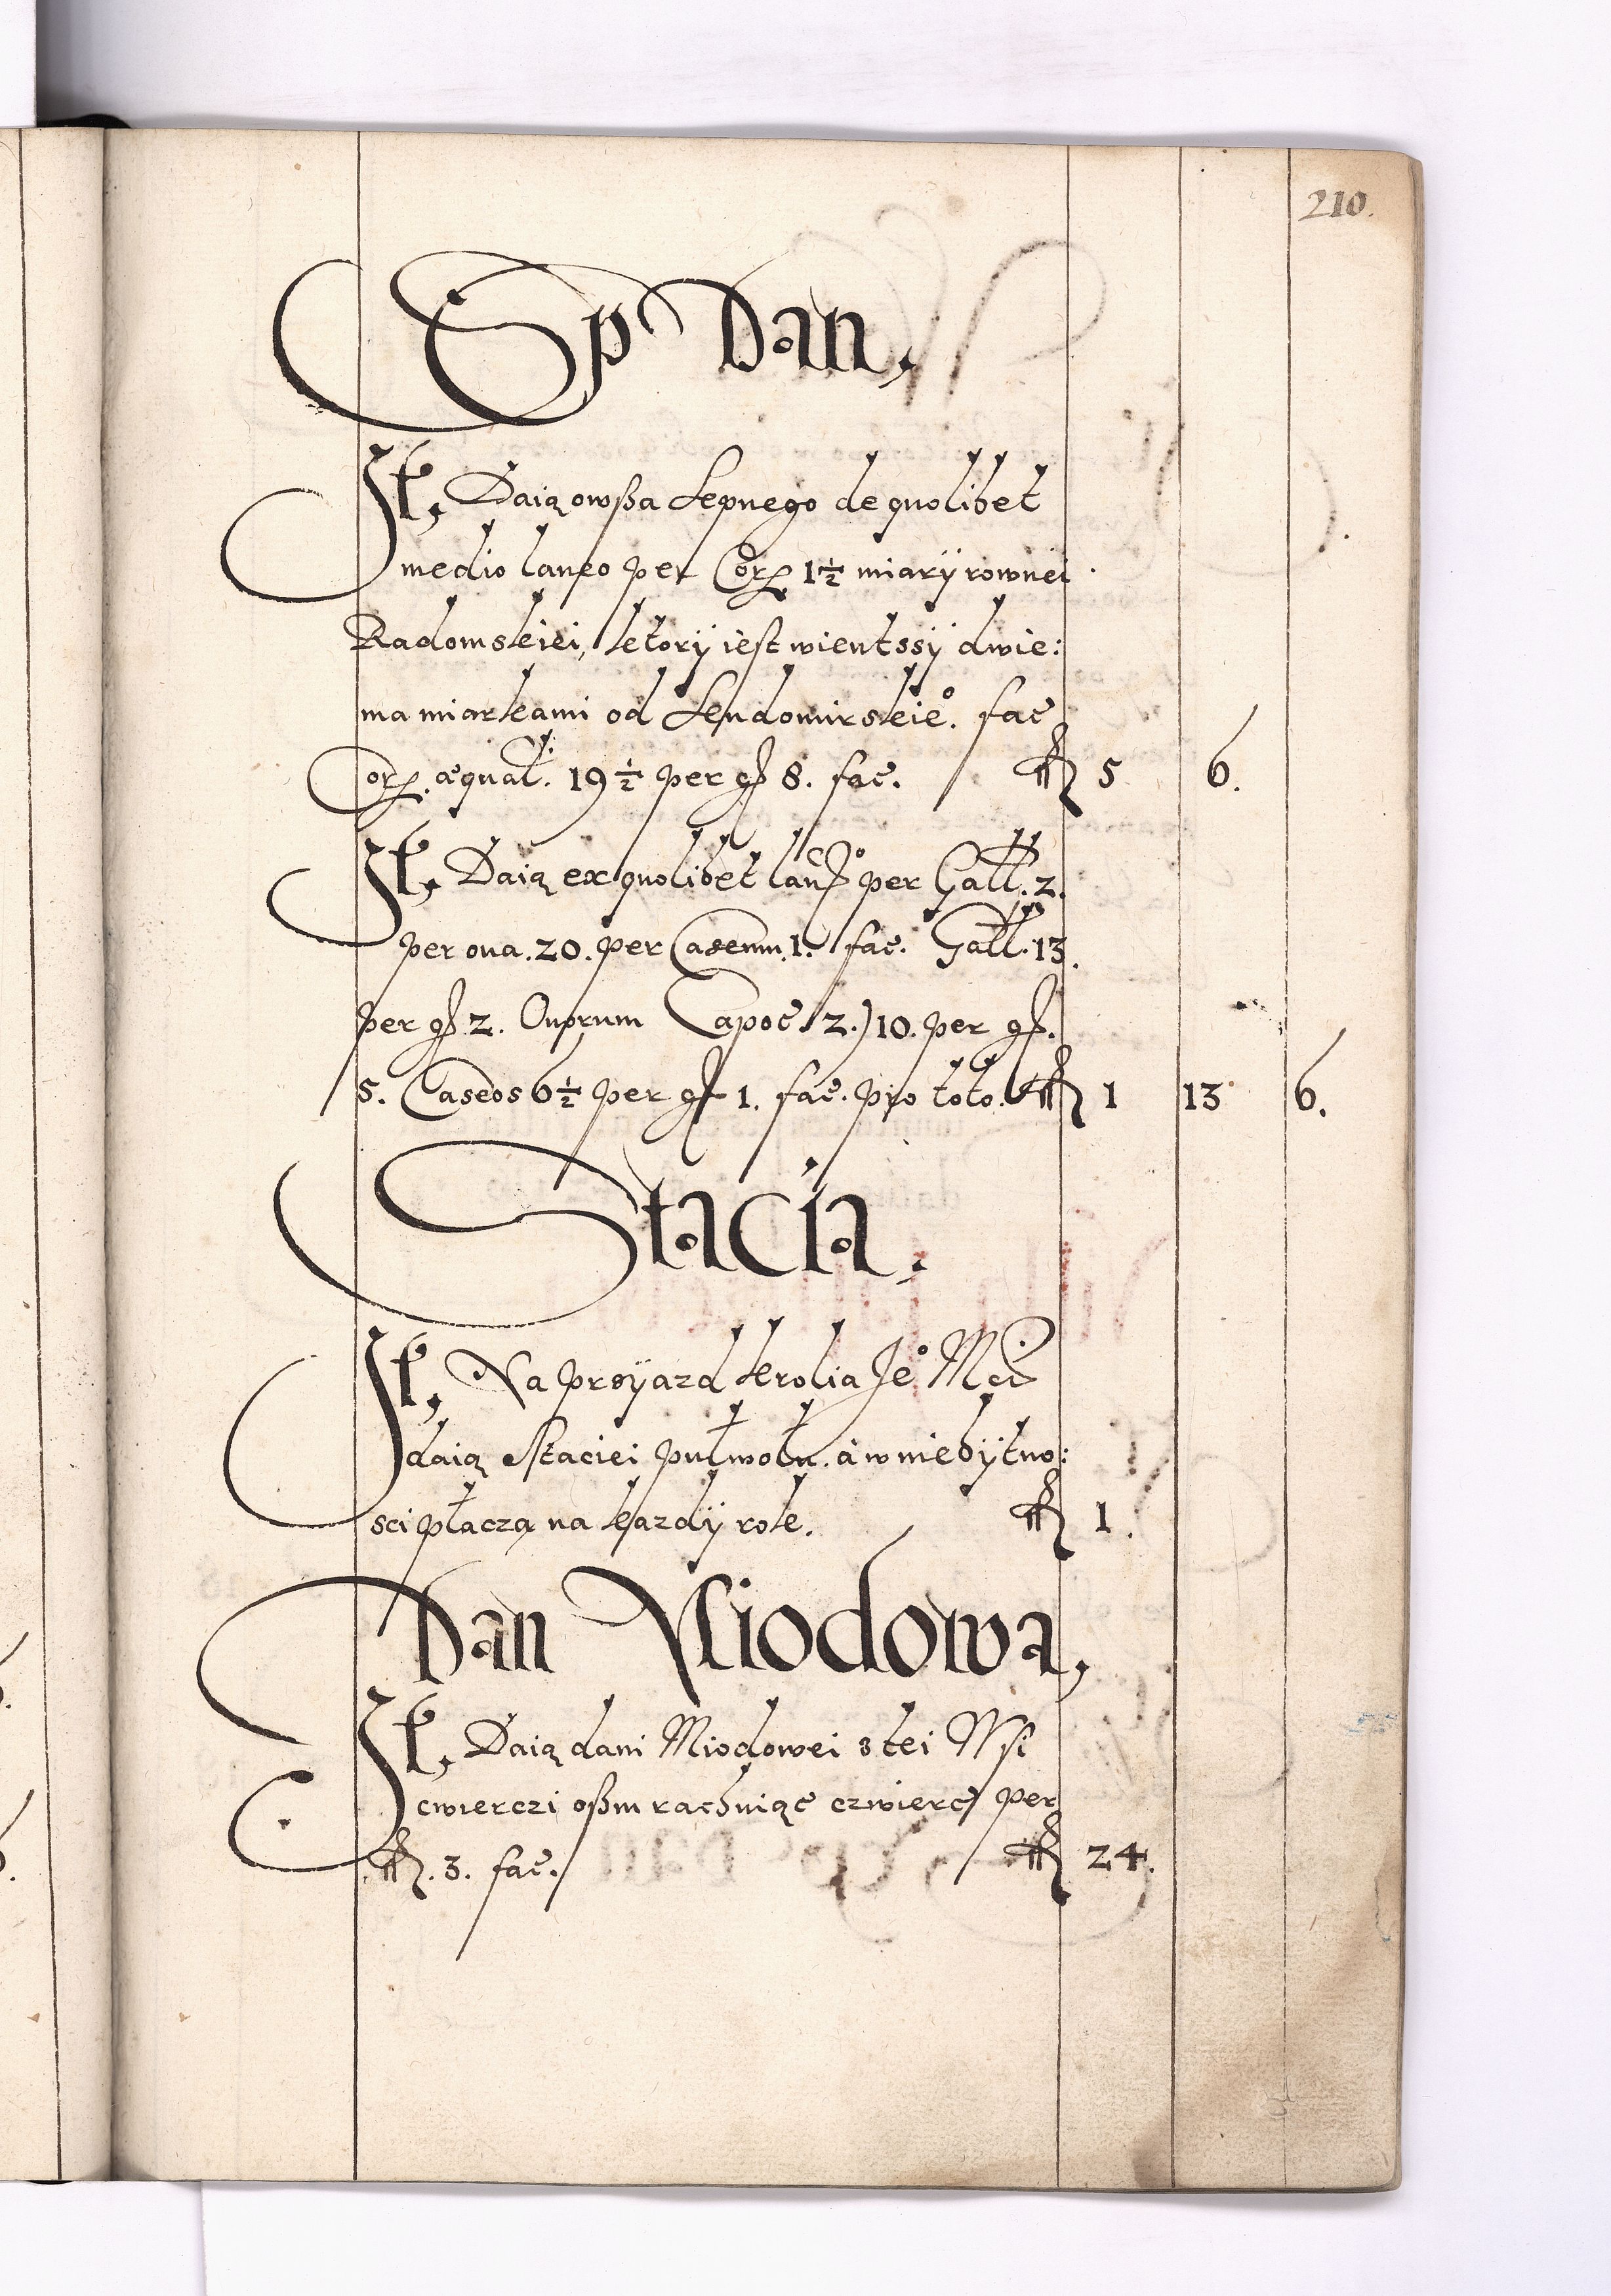 210.
Sp Dan,
It, Daią owßa Sepnego de quolibet
medio laneo per Cor 1½ miarÿ rownei
Radomskiei, ktorÿ iest wientssÿ dwie:
ma miarkami od Sendomirskieº. fac
Cor. æqual. 19½ per gr 8. fac. fl 5 6.
It, Daią ex quolibet laneº per Gall. 2.
per oua. 20. per Caseum. 1. fac. Gall. 13.
per gr 2. Ouorum Capoc 2.) 10. per gr.
5. Caseos 6½ per gr 1. fac. pro toto. fl 1 13 6.
Stacia,
It, Na przÿazd krolia Jeº Mci
daią Staciei pułwołu. a w niebÿtno:
sci płaczą na kazdÿ rok. fl 1.
Dan Miodowa,
It, Daią dani Miodowei s tei Wsi
cwierczi oßm rachuiąc czwierc per
fl. 3. fac. fl 24.